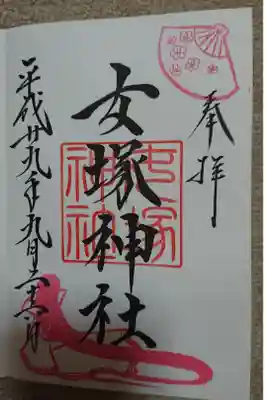 奉拝
女塚神社
女塚神社
平成廿九年九月二十六日